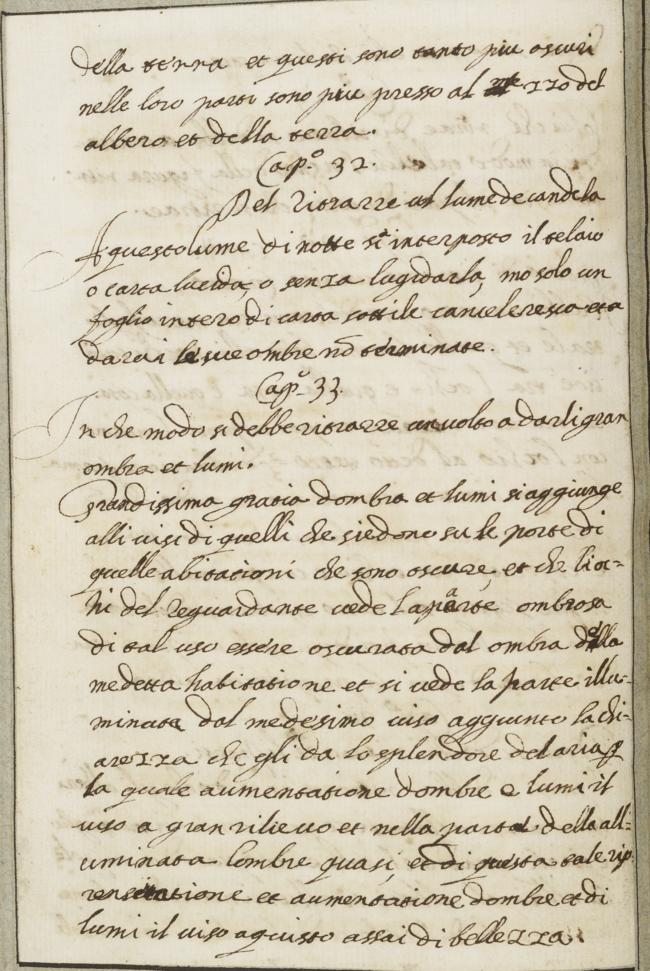 della terra et questi sono tanto piu oscuri
nelle loro parti sono piu presso al mezzo del
albero et della terra.
Cap.º 32.
Del ritrarre al lume de candela
A questo lume di notte si interposto il telaio
o carta lucida, o senza lugidarla, mo solo un
foglio intero di carta sottile canceleresca eta
darai le sue ombre nō terminate.
Cap.º 33.
In che modo si debbe ritrarre un volto a darli gran
ombra et lumi.
Grandissima gratia dombra et lumi si aggiunge
alli visi di quelli che siedono su le porte di
quelle abitationi che sono oscure, et che lioc-
hi del reguardante vede la parte ombrosa
di tal viso essere oscurata dal ombra della
medetta habitatione et si vede la parte illu-
minata dal medesimo viso aggiunto la chi-
arezza che gli da lo splendore del aria p
la quale aumentatione dombre e lumi il
viso a gran rilievo et nella parte della all-
uminata lombre quasi, et di questa tale rip-
rensetatione et aumentatione dombre et di
lumi il viso aquisto assai di bellezza